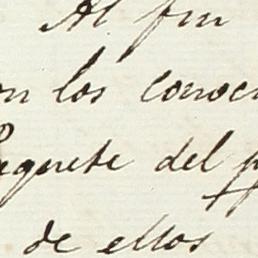 Al fin
on los conoci
Peguete del p
de ellos